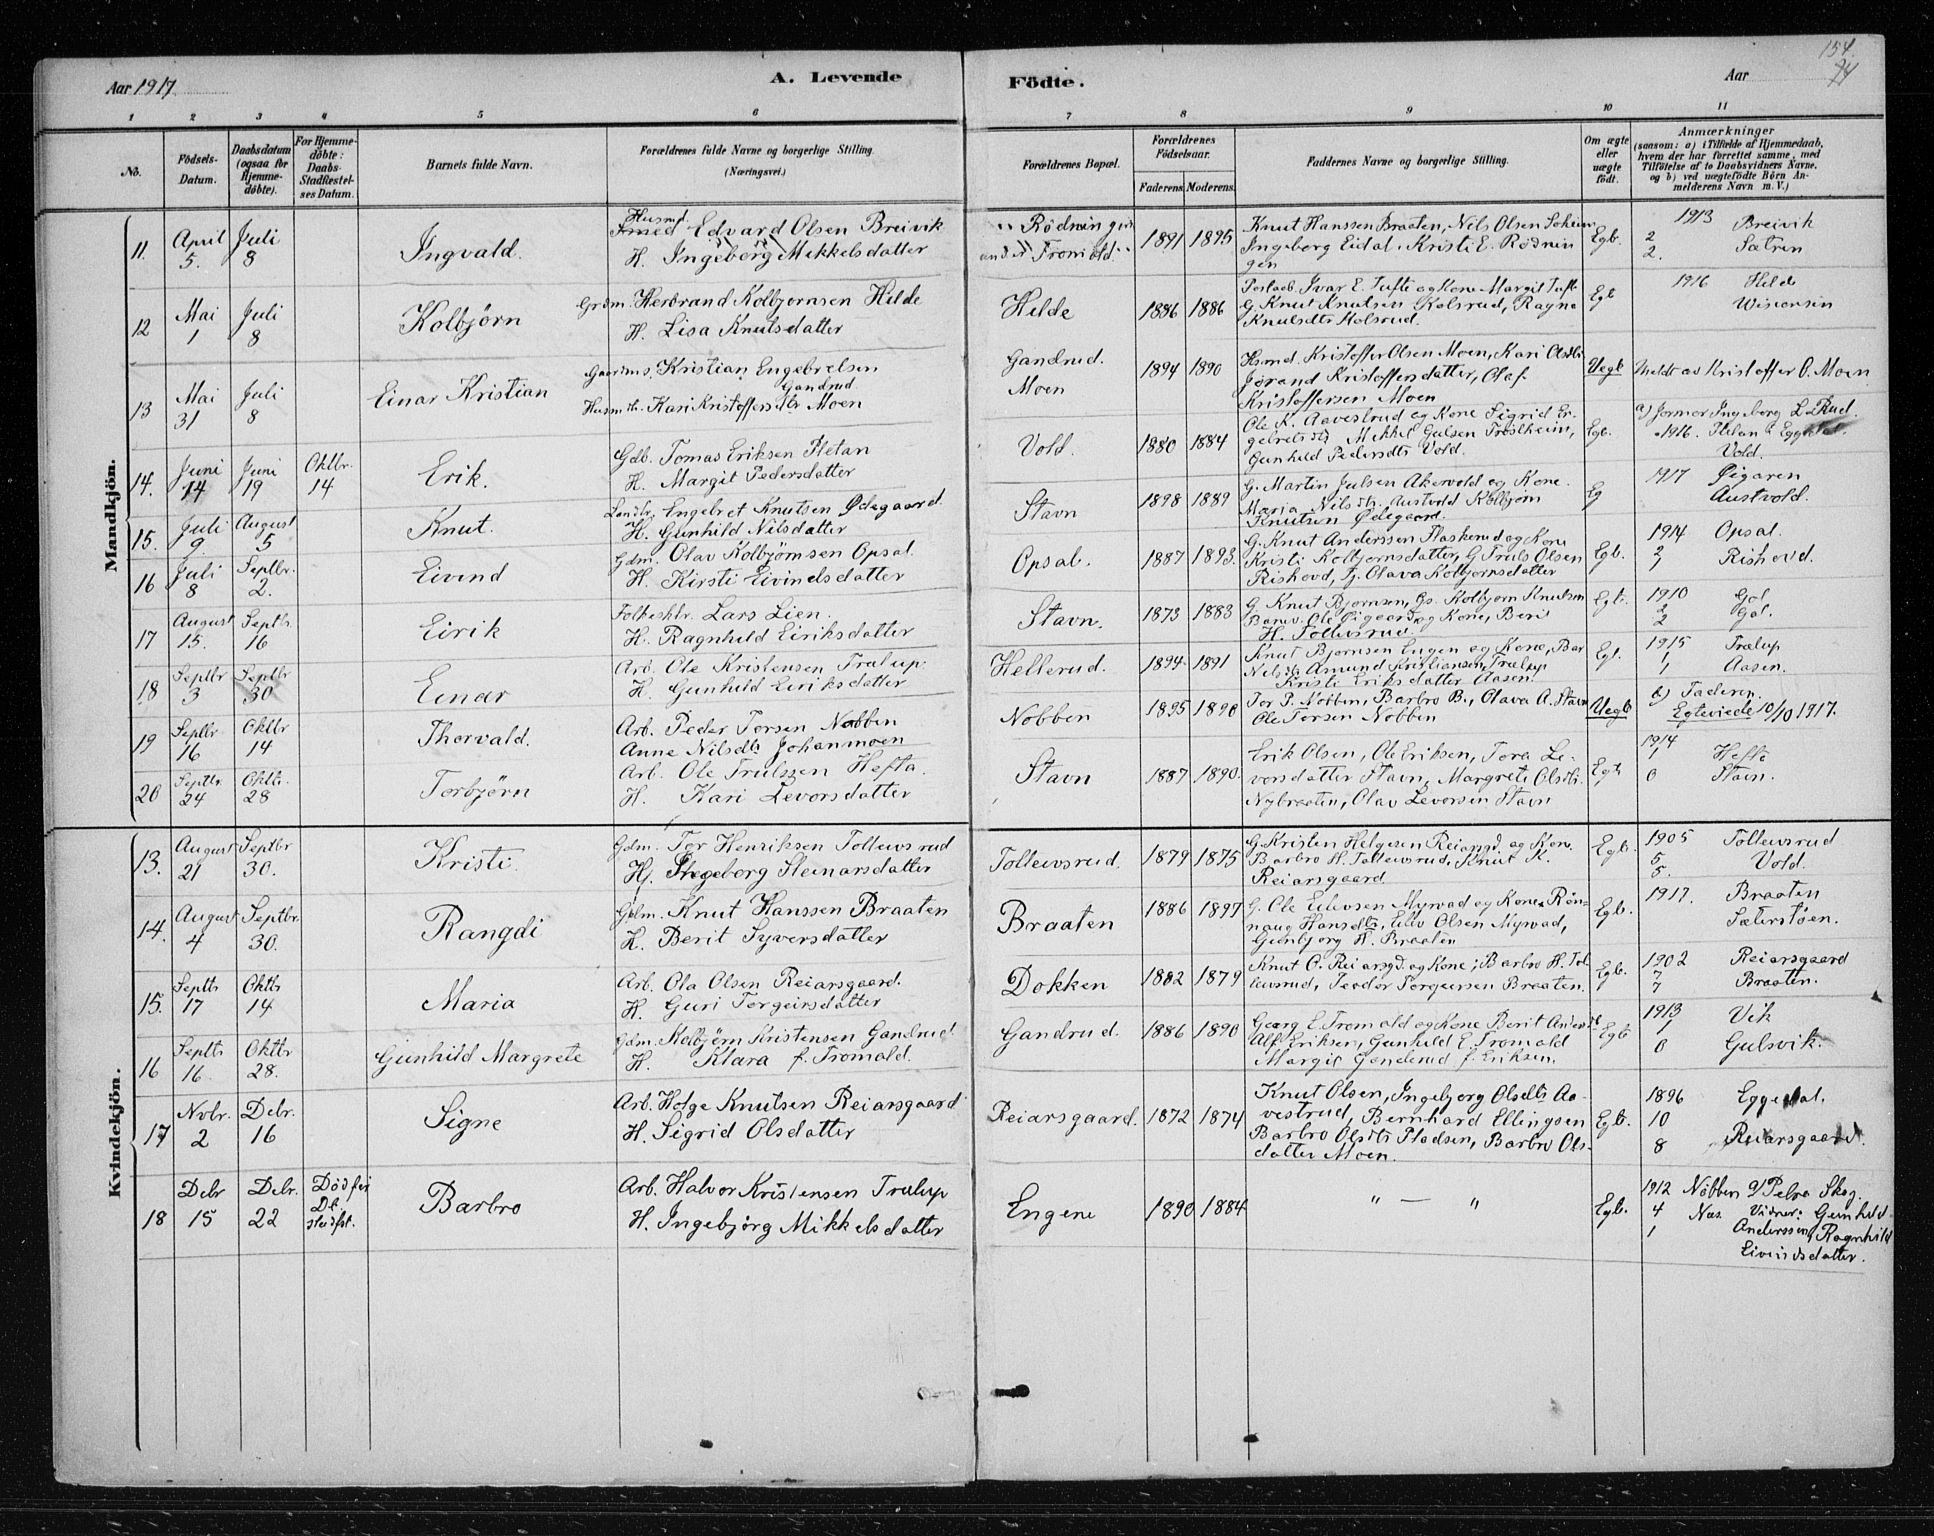 154.
74
Aar 1917
A. Levende
Födte.
Aar
1 2 3 4 5 6 7 8 9 10 11
No.
Födsels-Datum.
Daabsdatum (ogsaa for Hjemme-döbte).
For Hjemme-döbte: Daabs-Stadfæstel-ses Datum.
Barnets fulde Navn.
Forældrenes fulde Navne og borgerlige Stilling. (Næringsvei.)
Forældrenes Bopæl.
Forældrenes Födselsaar.
Faderens. Moderens.
Faddernes Navne og borgerlige Stilling.
Om ægte eller uægte födt.
Anmærkninger (saasom: a) i Tilfælde af Hjemmedaab, hvem der har forrettet samme, med Tilföielse af to Daabsvidners Navne, og b) ved uægtefödte Börn Anmelderens Navn m. V.)
Mandkjön.
11. April 5. Juli 8 Ingvald.
Husmd. Edvard Olsen Breivik
H. Ingeborg Mikkelsdatter
1891 1895
Knut Hanssen Braaten, Nils Olsen
Ingeborg Eidal, Kristi E. Rödnin
gen
Egb.
1913 Breivik
2 Sætren
2.
12 Mai 1 Juli 8 Kolbjörn
Grdm. Herbrand Kolbjornsen Hilde
H. Lisa Knutsdatter
Hilde
1886 1886
Ivar E. Tufte og Kone Margit Tuft
G. Knut Knutsen Kolsrud, Ragne
Knutsdtr
Egt
1916 Hilde
Wisconsin
13 Mai 31 Juli 8 Einar Kristian
Kristian Engebretsen
Gandrud
Kari Kristoffersdtr Moen
Gandrud.
Moen
1894 1890
Hsmd. Kristoffer Olsen Moen, Kari Olsdtr
Jörand Kristoffersdatter, Olaf
Kristoffersen Moen
Uegt
Meldt av Kristoffer O. Moen
14. Juni 14 Juni 19 Oktbr. 14 Erik.
Gdb. Tomas Eriksen Pletan
H. Margit Pedersdatter
Vold.
1880 1884
Ole K. Aavestrud og Kone Sigrid En-
gebretsdtr Mikkel Gulsen
Gunhild Pedersdtr Vold.
Egb.
a) Jormor Ingeborg L. Rud.
1916.
Vold.
15. Juli 9 August 5 Knut.
Engebret Knutsen Ödegaard
H. Gunhild Nilsdatter
Stavn
1898 1889
G. Martin Julsen Akervold og Kone
Maria Nilsdtr. Austvold Kolbjörn
Knutsen Ödegaard.
Eg
1917 Öigaren
Austvold.
16 Juli 8 Septbr. 2. Eivind
Gdm. Olav Kolbjörnsen Opsal
H. Kirsti Eivindsdatter
Opsal.
1887 1893.
G. Knut Anderssen Plaskerud og Kone
Kristi Kolbjornsdatter, G. Truls Olsen
Rishovd, Olava Kolbjornsdatter
Egb.
1914 Opsal.
2 Rishovd.
1
17 August 15. Septbr. 16 Eirik
Lars Lien.
H. Ragnhild Eiriksdatter
Stavn.
1873 1883
G. Knut Bjornsen, Gs. Kolbjorn Knutsen
Ole Öigaard og Kone, Beri
H. Tollevsrud
Egt.
1910 Gol
2 Gol.
2
18 Septbr 3 Septbr 30 Einar
Arb. Ole Kristensen Tralup.
H. Gunhild Eiriksdatter
Hellerud.
1894 1891
Knut Bjornsen Engen og Kone, Bar
Nilsdtr Asmund Kristiansen, Trælup
Kristi Eriksdatter Aasen.
Egt.
1915 Trælup
1 Aasen.
1
19 Septbr 16 Oktbr 14 Thorvald.
Arb. Peder Torsen Nobben
Anne Nilsdtr Johanmoen
Nobben
1895 1890
Tor P. Nobben, Barbro B., Olava A. Stavn
Ole Torsen Nobben
Uegt
b) Faderen.
Egteviede 10/10 1917.
20 Septbr 24 Oktbr. 28 Torbjörn
Arb. Ole Trulssen Hefta.
H. Kari Levorsdatter
Stavn
1887 1890.
Erik Olsen, Ole Eriksen, Tora Le-
vorsdatter Stavn, Margrete Olsdtr
Nybraaten, Olav Levorsen Stavn
Egt
1914
1 Hefta
0 Stavn.
Kvindekjön.
13. August 21 Septbr 30. Kristi.
Gdm. Tor Henriksen Tollevsrud
H. Ingeborg Steinarsdatter
Tollevsrud.
1879 1875
G. Kristen Helgesen Reiarsgd. og Kone
Barbro H. Tollevsrud, Knut K.
Reiarsgaard
Egb.
1905 Tollevsrud
5 Vold.
5.
14. August 4 Septbr. 30. Rangdi
Gdm. Knut Hanssen Braaten
H. Berit Syversdatter
Braaten
1886 1897
G. Ole Eilevsen Myrvad og Kone Rön-
naug Hansdtr, Ellev Olsen Myrvad,
Gunbjorg H. Braaten
Egb.
1917. Braaten
Sæterstöen.
15. Septbr 17 Oktbr 14 Maria
Arb. Ola Olsen Reiarsgaard.
H. Guri Torgeirsdatter
Dokken
1882 1879
Knut O. Reiarsgd. og Kone, Barbro H. Tol
levsrud, Teodor Torgeirssen Braaten.
Egb.
1902 Reiarsgaard
7 Braaten.
7
16 Septbr 16. Oktbr 28. Gunhild Margrete
Gdm. Kolbjörn Kristensen Gandrud
H. Klara f. Tromald.
Gandrud.
1886 1890
Georg E. Tromald og Kone Berit Andersd
Alf Eriksen, Gunhild E. Tromald
Margit Ganderud f. Eriksen.
Egt
1913 Vik
1 Gulsvik.
0
17 Novbr. 2 Debr. 16 Signe
Arb. Holge Knutsen Reiarsgaard
H. Sigrid Olsdatter
Reiarsgaard.
1872 1874
Knut Olsen, Ingeborg Olsdtr Aa-
vestrud, Bernhard Ellingsen
Barbro Olsdtr Pladsen, Barbro Ols-
datter Moen.
Egt.
1896 Eggedal.
10
8 Reiarsgaard.
18 Debr 15 Debr. 22 Död för Dt. stadfst. Barbro
Arb. Halvor Kristensen Trulup
H. Ingebjörg Mikkelsdatter
Engene
1890 1884
" — "
Egb.
1912 Nöbben
4 Nes. Vidner: Gunhild
1 Anderssen, Ragnhild
Eivindsdatter.